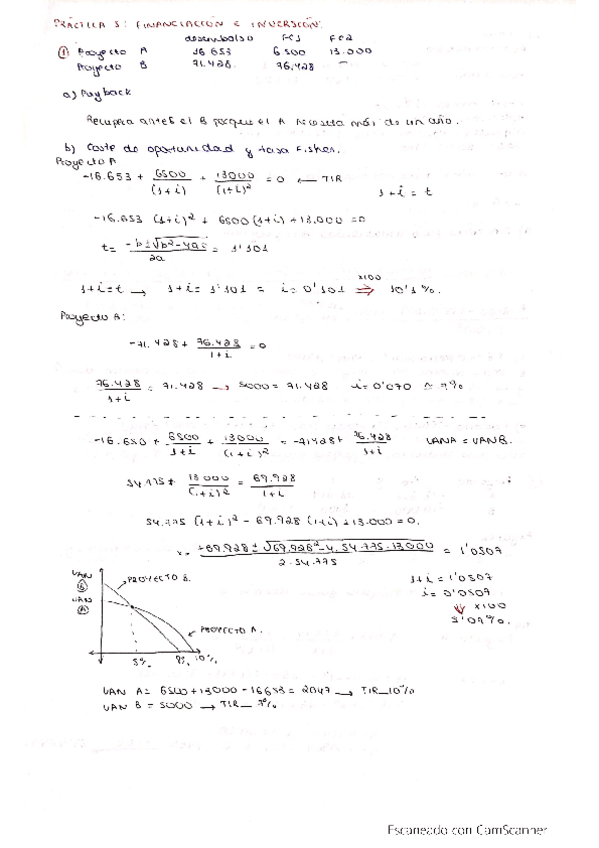 PRÁCTICA 3: FINANCIACION E INVERSIÓN.
desembolso FC1 FC2
① Proyecto A 16 653 6 500 13.000
Proyecto B 71.428 76.428 —
a) Payback
Recupera antes el B porque el A necesita más de un año.
b) Coste de oportunidad y tasa Fisher.
Proyecto A
-16.653 + 6500/(1+i) + 13000/(1+i)² = 0 ← TIR
1+i = t
-16.653 (1+i)² + 6500 (1+i) + 13.000 = 0
t = -b±√b²-4ac / 2a = 1'101
1+i = t → 1+i = 1'101 = i = 0'101 ⇒ x100 10'1 %.
Proyecto A:
-71.428 + 76.428/1+i = 0
76.428/1+i = 71.428 → 5000 = 71.428 i = 0'070 ≈ 7%
-16.650 + 6500/1+i + 13000/(1+i)² = -71428 + 76.428/1+i VANA = VAN B.
54.775 + 13 000/(1+i)² = 69.928/1+i
54.775 (1+i)² - 69.928 (1+i) + 13.000 = 0.
x = +69.928 ± √69.928² - 4. 54.775 . 13000 / 2.54.775 = 1'0507
1+i = 1'0507
i = 0'0507
⇓ x100
VAN
Ⓑ
PROYECTO B.
Ⓐ
PROYECTO A.
5%. 7%. 10%.
VAN A = 6500 + 13000 - 16653 = 2847 → TIR_10%
VAN B = 5000 → TIR_ 7%
Escaneado con CamScanner